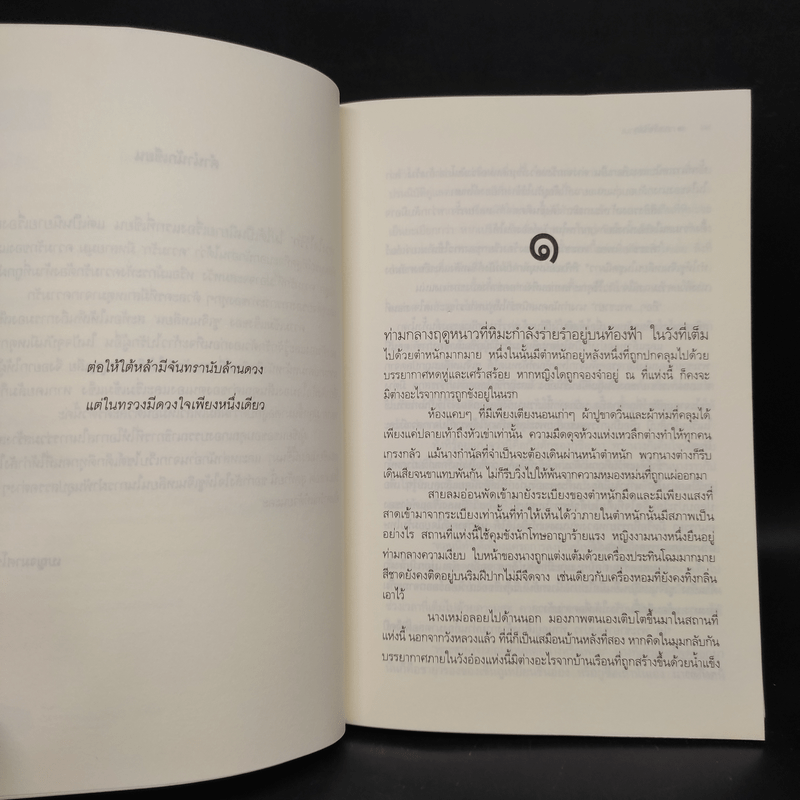 ต่อให้ใต้หล้ามีจันทรานับล้านดวง
แต่ในทรวงมีดวงใจเพียงหนึ่งเดียว
๑
ท่ามกลางฤดูหนาวที่หิมะกำลังร่ายรำอยู่บนท้องฟ้า ในวังที่เต็ม
ไปด้วยตำหนักมากมาย หนึ่งในนั้นมีตำหนักอยู่หลังหนึ่งที่ถูกปกคลุมไปด้วย
บรรยากาศหดหู่และเศร้าสร้อย หากหญิงใดถูกจองจำอยู่ ณ ที่แห่งนี้ ก็คงจะ
มิต่างอะไรจากการถูกขังอยู่ในนรก
ห้องแคบๆ ที่มีเพียงเตียงนอนเก่าๆ ผ้าปูขาดวิ่นและผ้าห่มที่คลุมได้
เพียงแค่ปลายเท้าถึงหัวเข่าเท่านั้น ความมืดดุจห้วงแห่งเหวลึกต่างทำให้ทุกคน
เกรงกลัว แม้นางกำนัลที่จำเป็นจะต้องเดินผ่านหน้าตำหนัก พวกนางต่างก็รีบ
เดินเสียจนขาแทบพันกัน ไม่ก็รีบวิ่งไปให้พ้นจากความหมองหม่นที่ถูกแผ่ออกมา
สายลมอ่อนพัดเข้ามายังระเบียงของตำหนักมืดและมีเพียงแสงที่
สาดเข้ามาจากระเบียงเท่านั้นที่ทำให้เห็นได้ว่าภายในตำหนักนั้นมีสภาพเป็น
อย่างไร สถานที่แห่งนี้ใช้คุมขังนักโทษอาญาร้ายแรง หญิงงามนางหนึ่งยืนอยู่
ท่ามกลางความเงียบ ใบหน้าของนางถูกแต่งแต้มด้วยเครื่องประทินโฉมมากมาย
สีชาดยังคงติดอยู่บนริมฝีปากไม่มีจืดจาง เช่นเดียวกับเครื่องหอมที่ยังคงทิ้งกลิ่น
เอาไว้
นางเหม่อลอยไปด้านนอก มองภาพตนเองเติบโตขึ้นมาในสถานที่
แห่งนี้ นอกจากวังหลวงแล้ว ที่นี่ก็เป็นเสมือนบ้านหลังที่สอง หากคิดในมุมกลับกัน
บรรยากาศภายในวังอ๋องแห่งนี้มิต่างอะไรจากบ้านเรือนที่ถูกสร้างขึ้นด้วยน้ำแข็ง